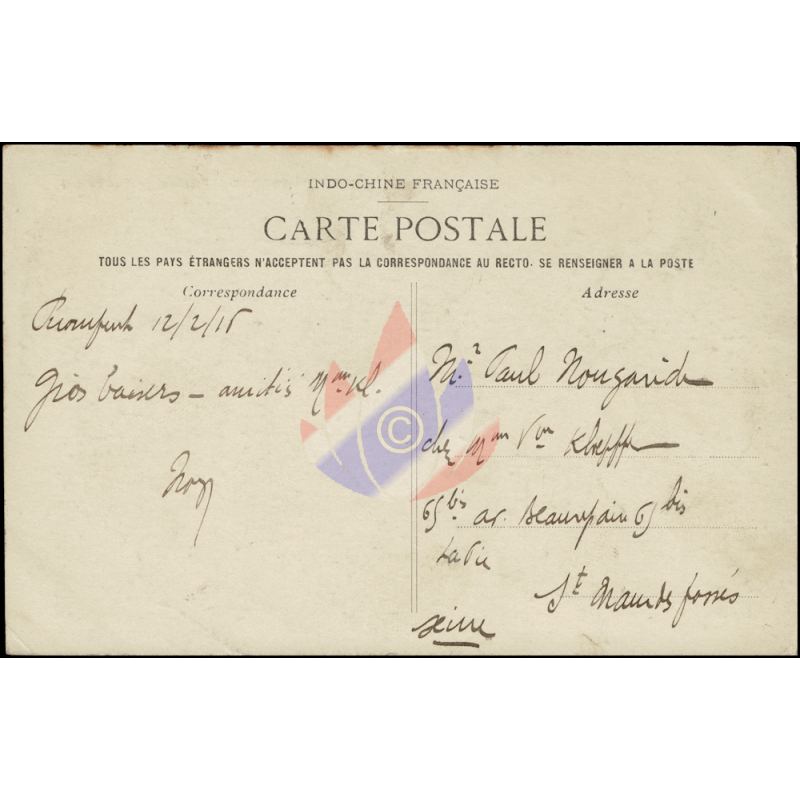 INDO-CHINE FRANÇAISE
CARTE POSTALE
TOUS LES PAYS ÉTRANGERS N'ACCEPTENT PAS LA CORRESPONDANCE AU RECTO. SE RENSEIGNER A LA POSTE
Correspondance
12/2/15
Gros baisers – amitiés Mme Kl.
Adresse
Mr Paul Nougarède
chez Mme Vve Kloepffer
65bis av. Beaurepaire 65bis
La Pie
St Maur des fossés
Seine
©